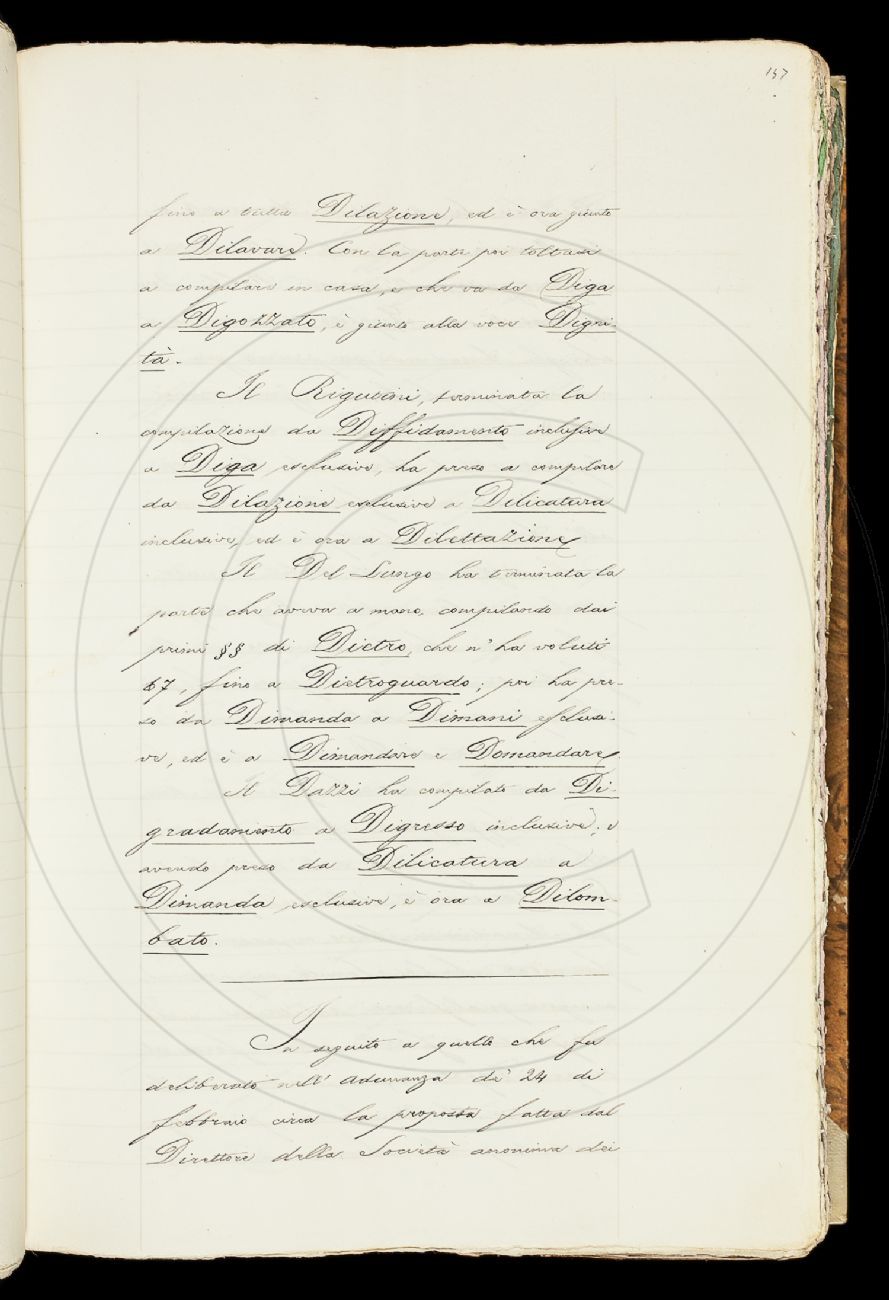 157
fino a tutta Dilazione, ed è ora giunto
a Dilavare. Con la parte poi toltasi
a compilare in casa, e che va da Diga
a Digozzato, è giunto alla voce Digni-
tà.
Il Rigutini, terminata la
compilazione da Diffidamento inclusive
a Diga esclusive, ha preso a compilare
da Dilazione esclusive a Dilicatura
inclusive, ed è ora a Dilettazione
Il Del Lungo ha terminata la
parte che aveva a mano, compilando dai
primi §§ di Dietro, che n'ha voluti
67, fino a Dietroguardo; poi ha pre-
so da Dimanda a Dimani esclusi-
ve, ed è a Dimandare e Domandare
Il Dazzi ha compilato da Di-
gradamento a Digresso inclusive; e
avendo preso da Dilicatura a
Dimanda esclusive, è ora a Dilom-
bato.
In seguito a quello che fu
deliberato nell' Adunanza de' 24 di
febbraio circa la proposta fatta dal
Direttore della Società anonima dei